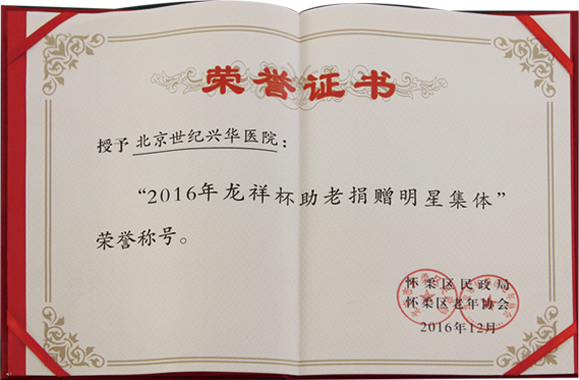 荣誉证书
授予 北京世纪兴华医院：
“2016年龙祥杯助老捐赠明星集体”
荣誉称号。
怀柔区民政局
怀柔区老年协会
2016年12月